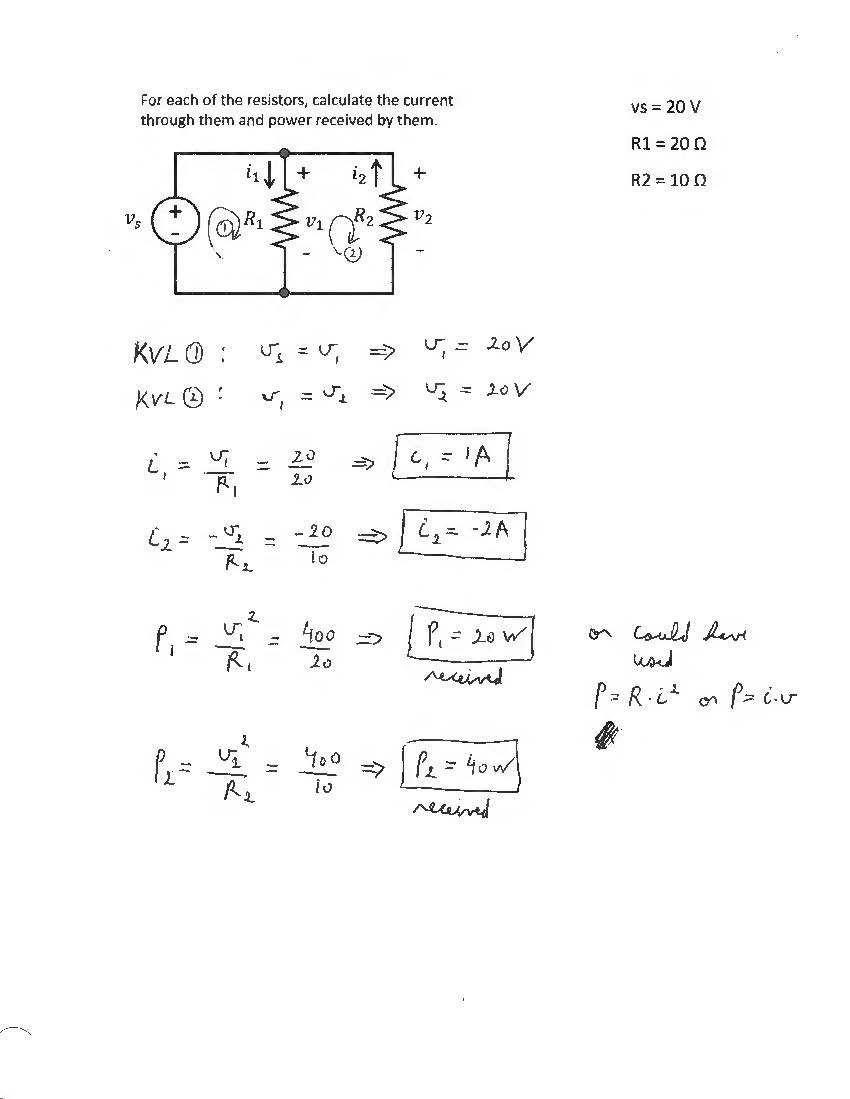 For each of the resistors, calculate the current
through them and power received by them.
vs = 20 V
R1 = 20 Ω
R2 = 10 Ω
i₁ + i₂ +
vₛ + - ① R₁ v₁ R₂ v₂
- ② -
KVL ① : vₛ = v₁ ⇒ v₁ = 20V
KVL ② : v₁ = v₂ ⇒ v₂ = 20V
i₁ = v₁/R₁ = 20/20 ⇒ i₁ = 1A
i₂ = -v₂/R₂ = -20/10 ⇒ i₂ = -2A
P₁ = v₁²/R₁ = 400/20 ⇒ P₁ = 20 W
received
or could have
used
P = R·i² or P = i·v
P₂ = v₂²/R₂ = 400/10 ⇒ P₂ = 40 W
received